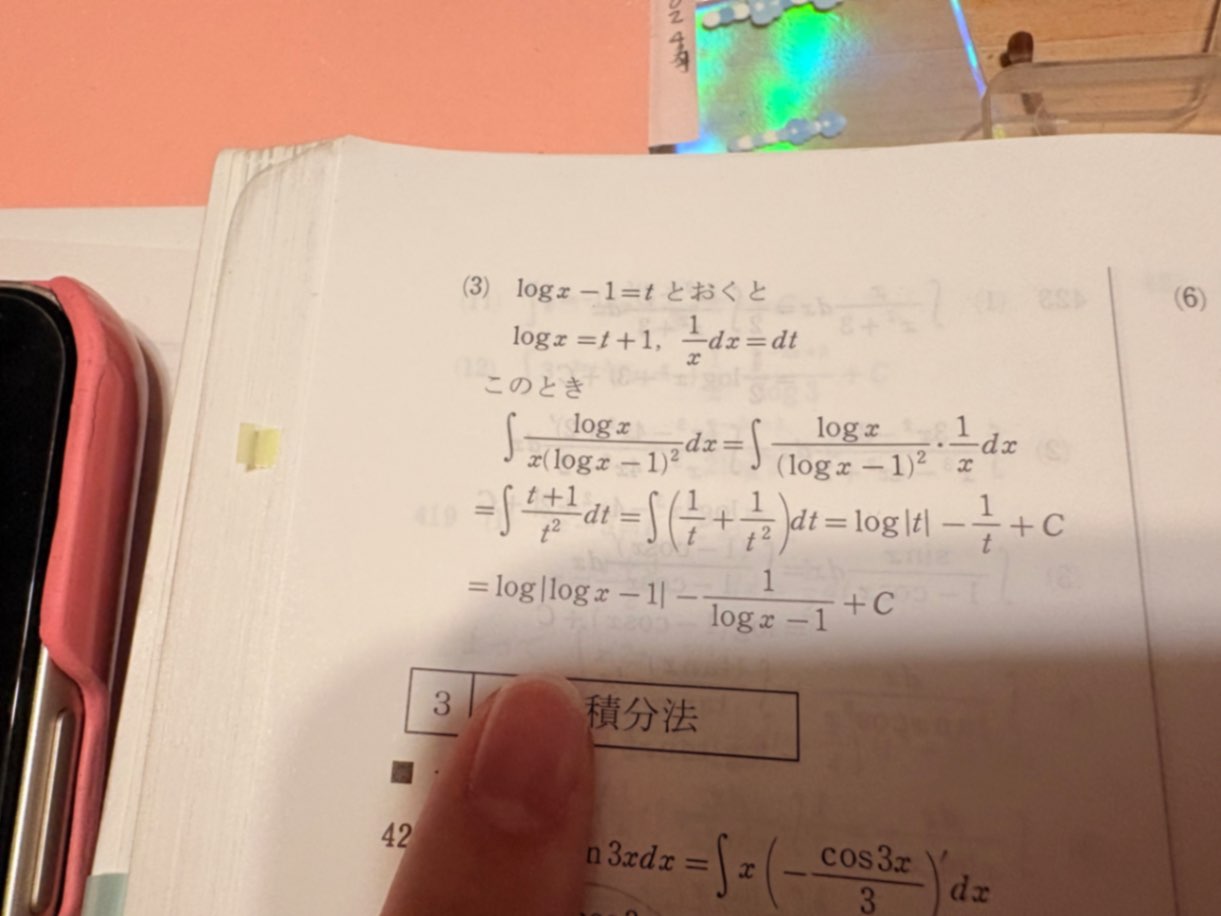 024
(3) logx−1=t とおくと
logx=t+1, 1/x dx=dt
このとき
∫ logx/(x(logx−1)²) dx=∫ logx/(logx−1)² · 1/x dx
=∫ (t+1)/t² dt=∫(1/t+1/t²)dt=log|t|−1/t+C
=log|logx−1|−1/(logx−1)+C
3 積分法
42
n3xdx=∫x(−cos3x/3)′dx
(6)